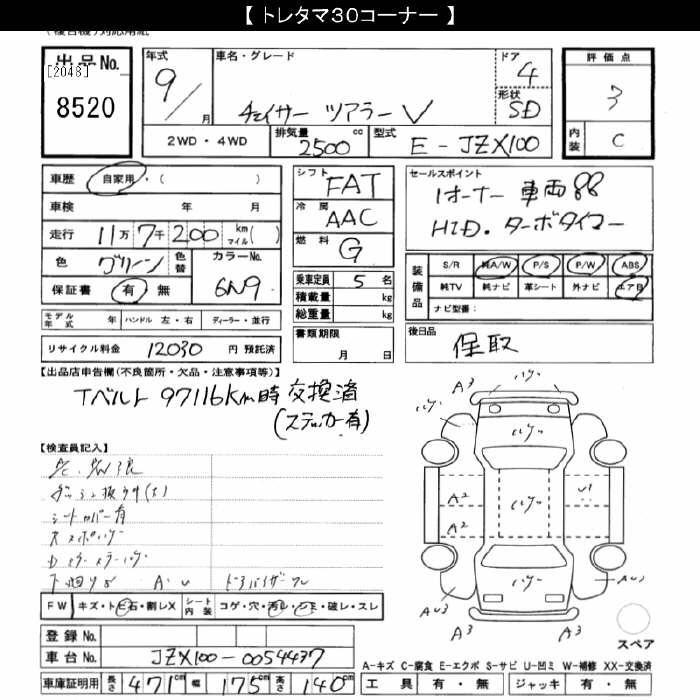 【 トレタマ30コーナー 】
出品No.
[2048]
8520
年式
9/
月
車名・グレード
チェイサー ツアラーV
ドア
4
形状
SD
2WD・4WD
排気量
2500 cc
型式
E-JZX100
評価点
3
内装
C
車歴 自家用・( )
車検 年 月
走行 11万7千200 km マイル( )
色 グリーン 色替 カラーNo. 6N9
保証書 有 無
モデル年式 年 ハンドル 左・右 ディーラー・並行
リサイクル料金 12030 円 預託済
シフト FAT
冷房 AAC
燃料 G
乗車定員 5 名
積載量 kg
総重量 kg
書類期限
月 日
セールスポイント
1オーナー 車両
HID. ターボタイマー
装備品
S/R 純A/W P/S P/W ABS
純TV 純ナビ 革シート 外ナビ エアB
ナビ型番:
後日品
保取
【出品店申告欄(不良箇所・欠品・注意事項等)】
Tベルト 97116km時 交換済
(ステッカー有)
【検査員記入】
シートカバー有
下廻りS A.U
FW キズ・トビ石・割レX シート内装 コゲ・穴・汚レ・シミ・破レ・スレ
登録No.
車台No. JZX100-0054437
車庫証明用 長さ 471cm 幅 175cm 高さ 140cm
A3
ハゲ
ハゲ
A2
ハゲ
U1
A2
ハゲ
AU3
A3
A3
スペア
A-キズ C-腐食 E-エクボ S-サビ U-凹ミ W-補修 XX-交換済
工具 有・無 ジャッキ 有・無